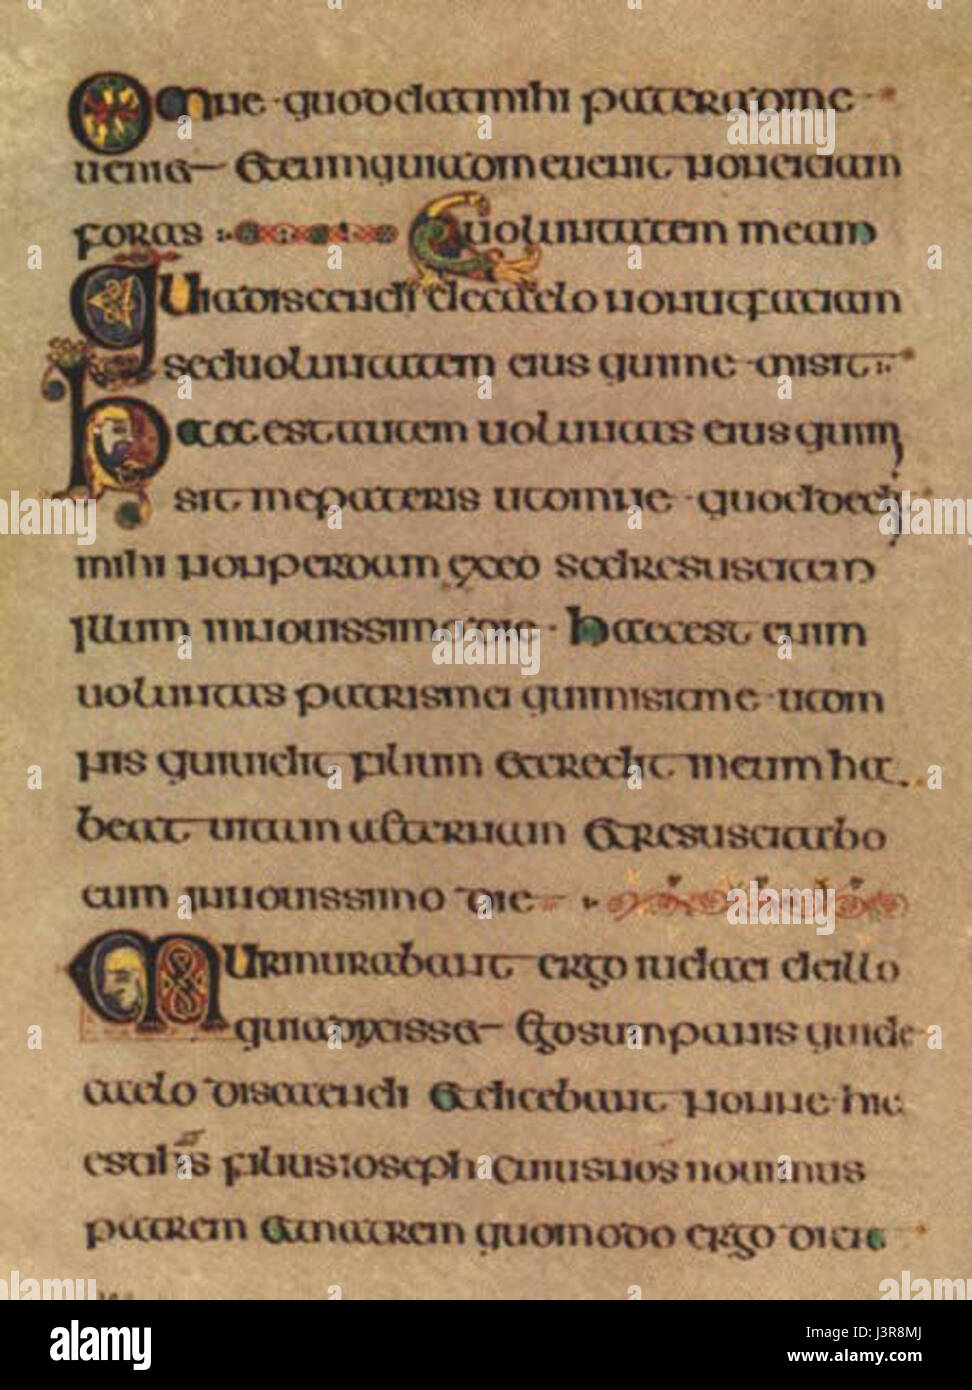 Omne quod dat mihi pater ad me
ueniet et eum qui ad me uenit non eiciam
foras uoluntatem meam
Quia discendi de caelo non ut faciam
sed uoluntatem eius qui me misit
haec est autem uoluntas eius qui mi
sit me pateris ut omne quod dedit
mihi non perdam ex eo sed resuscitam
illum in nouissimo die haec est enim
uoluntas patris mei qui misit me ut om
nis qui uidit filium et credit in eum ha
beat uitam aeternam et resuscitabo
eum in nouissimo die
Murmurabant ergo iudaei de illo
quia dixisset ego sum panis qui de
caelo discendi et dicebant nonne hic
est filius ioseph cuius nos nouimus
patrem et matrem quomodo ergo dicit
alamy
Image ID: J3R8MJ
www.alamy.com